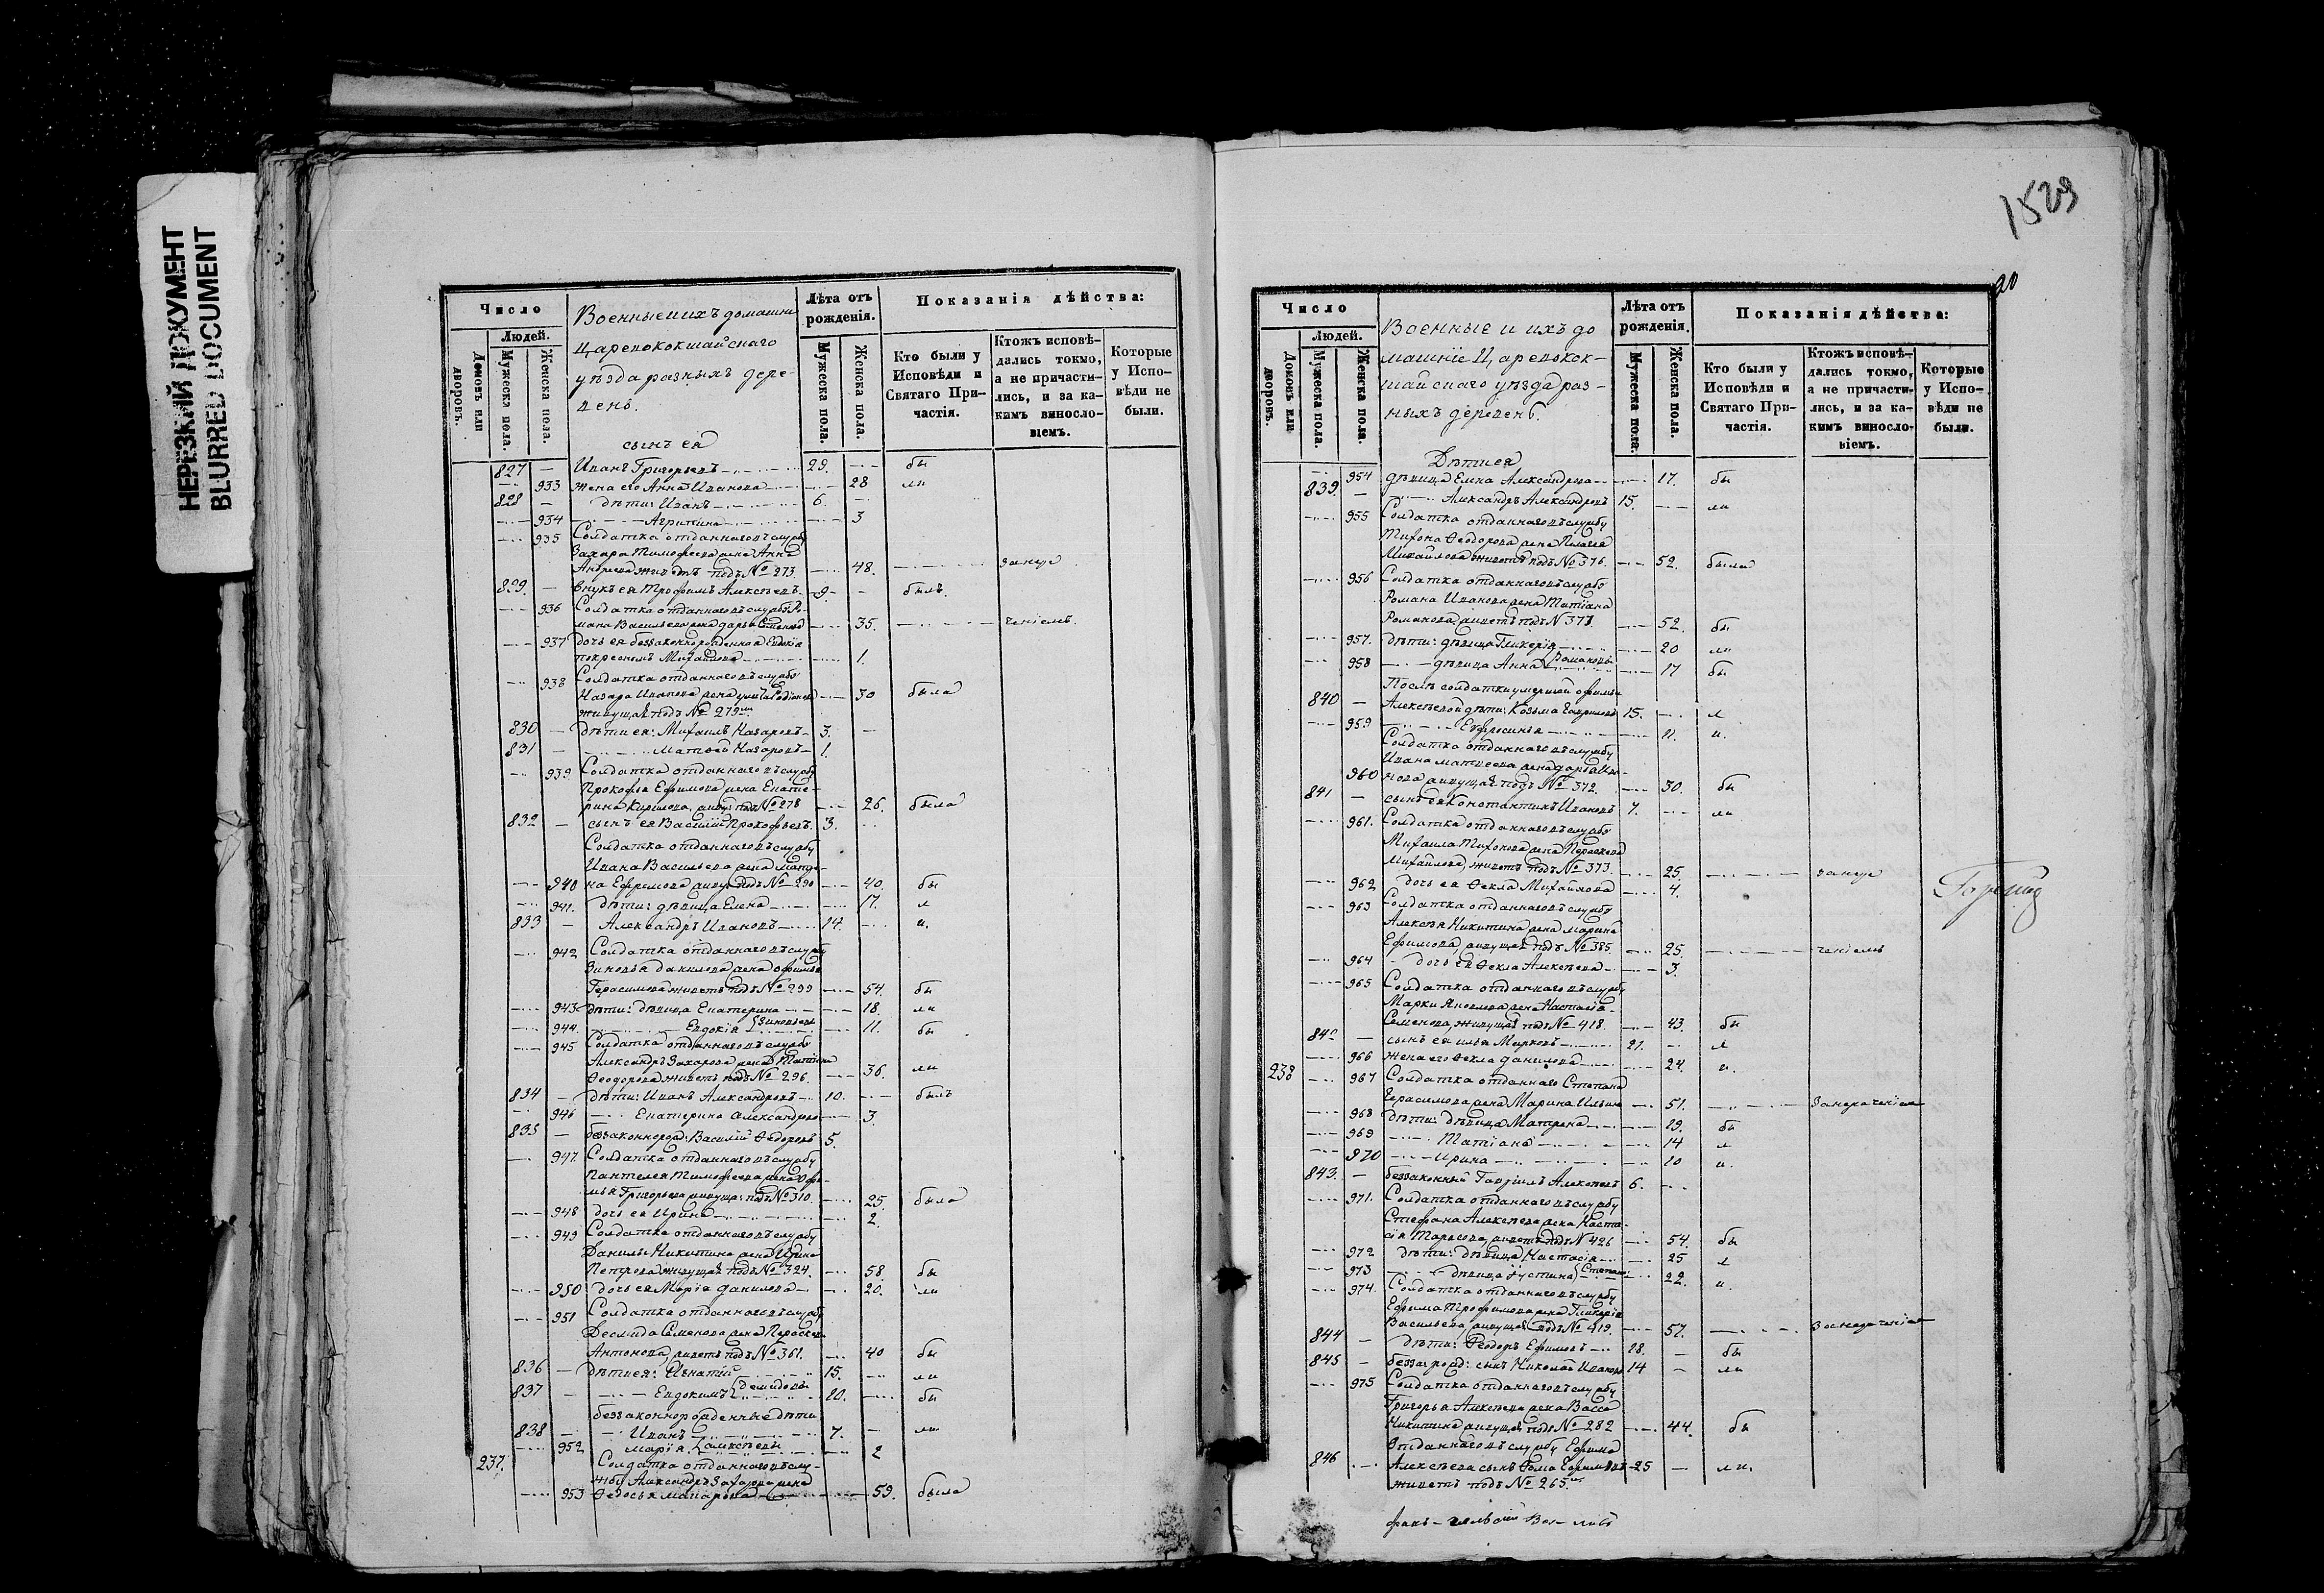 НЕРЕЗКИЙ ДОКУМЕНТ
BLURRED DOCUMENT
Число
Людей.
Домовъ или дворовъ.
Мужеска пола.
Женска пола.
Военные и ихъ домашни
Царевококшайскаго
уѣзда разныхъ дере-
вень.
Лѣта отъ рожденія.
Мужеска пола.
Женска пола.
Показанія дѣйства:
Кто были у Исповѣди и Святаго При-частія.
Ктожъ исповѣ-дались токмо, а не причасти-лись, и за ка-кимъ винosло-віемъ.
Которые у Испо-вѣди не были.
сынъ ея
827 — Иванъ Григорьевъ 29. бы
933 жена его Анна Иванова 28 ли
828 — дѣти: Иванъ 6.
934 Агрипина 3
935 Солдатка отданнаго въ службу
Захара Тимофеева жена Анна
Андреева живетъ подъ № 273. 48.
829. — внукъ ея Трофимъ Алексѣевъ 9 былъ.
936 Солдатка отданнаго въ службу Ро
мана Васильева жена Дарья 35. ченіемъ.
937 дочь ея беззаконнорожденная Евдокія
по крестномъ Михайлова 1.
938 Солдатка отданнаго въ службу
Назара Иванова жена 30 была
живущая подъ № 279
830 — дѣти ея: Михаилъ Назаровъ 3.
831 — Матвей Назаровъ 1.
939 Солдатка отданнаго въ службу
Прокофья Ефимова жена Екате-
рина Кирилова, живу: подъ № 278 26. была
832 — сынъ ея Василій Прокофьевъ 3.
Солдатка отданнаго въ службу
Ивана Васильева жена
940 на Ефремова живу: подъ № 290 40. бы
941. дѣти: дѣвица Елена 17. л
833 — Александръ Ивановъ 14. и.
942 Солдатка отданнаго въ службу
Зиновья Данилова жена Офимья
Герасимова живетъ подъ № 299 54. бы
943 дѣти: дѣвица Екатерина 18. ли
944. Евдокія Зиновьевы 11. бы
945 Солдатка отданнаго въ службу
Александръ Захарова жена Татiана
Феодорова живетъ подъ № 296. 36. ли
834 — дѣти: Иванъ Александровъ 10. былъ
946 Екатерина Александрова 3.
835 — беззаконнорож: Василій Федоровъ 5.
947 Солдатка отданнаго въ службу
Пантелея Тимофеева жена Офи-
мья Григорьева живуща: подъ № 310. 25. была
948 дочь ея Ирина 2.
949 Солдатка отданнаго въ службу
Данилы Никитина жена Ирина
Петрова живущая подъ № 324. 58. бы
950 дочь ея Марія Данилова 20. ли
951 Солдатка отданнаго въ службу
Демида Семенова жена Параскева
Антонова, живетъ подъ № 361. 40 бы
836 — дѣти ея: Игнатій 15. ли
837 — Евдокимъ Демидовы 10. бы
беззаконнорожденные дѣти
838 — Иванъ 7. — ли
952. Марія Алексѣевы 2
237. Солдатка отданнаго въ слу-
жбу Александръ Захарова жена
953 Федосья Макарова 59. была
1529
20
Число
Людей.
Домовъ или дворовъ.
Мужеска пола.
Женска пола.
Военные и ихъ до
машніи Царевокок-
шайскаго уѣзда раз-
ныхъ деревень.
Лѣта отъ рожденія.
Мужеска пола.
Женска пола.
Показанія дѣйства:
Кто были у Исповѣди и Святаго При-частія.
Ктожъ исповѣ-дались токмо, а не причасти-лись, и за ка-кимъ винosло-віемъ.
Которые у Испо-вѣди не были.
Дѣти ея
954 дѣвица Елена Александрова 17. бы
839. — Александръ Александровъ 15. ли
955 Солдатка отданнаго въ службу
Тихона Феодорова жена Пелагея
Михайлова живетъ подъ № 376. 52. была
956 Солдатка отданнаго въ службу
Романа Иванова жена Татiана
Романова живетъ подъ № 377. 52. бы
957. дѣти: дѣвица Гликерія 20 ли
958 дѣвица Анна Романовы 17 бы
Послѣ солдатки умершей Офимьи
840 — Алексѣевой дѣти: Козьма Гавриловъ 15. л
959 Евфросинья 11. и.
Солдатка отданнаго въ службу
Ивана Матвеева жена Дарья Ива-
960 нова живущая подъ № 372. 30. бы
841 — сынъ ея Константинъ Ивановъ 7. ли
961. Солдатка отданнаго въ службу
Михаила Тихонова жена Параскева
Михайлова, живетъ подъ № 373. 25.
962 дочь ея Фекла Михайлова 4.
963 Солдатка отданнаго въ службу
Алексѣя Никитина жена Марина
Ефимова, живущая подъ № 385. 25. ченіемъ
964 дочь ея Фекла Алексѣева 3.
965 Солдатка отданнаго въ службу
Марки Яковлева жена Настасiя
Семенова, живущая подъ № 418. 43. бы
842 — сынъ ея Илья Марковъ 21. л
966 жена его Фекла Данилова 24. и.
238 967 Солдатка отданнаго Степана
Герасимова жена Марина Ильина 51.
968 дѣти: дѣвица Матрена 19. бы
969 Татiана 14 л
970 Ирина 10 и.
843. — беззаконный Гавріилъ Алексѣевъ 6.
971. Солдатка отданнаго въ службу
Стефана Алексѣева жена Наста-
сія Тарасова, живетъ подъ № 426 54. бы
972 дѣти: дѣвица Настасія 25 л
973 дѣвица Устина 22. и.
974. Солдатка отданнаго въ службу
Ефима Трофимова жена Гликерія
Васильева, живущая подъ № 419. 57.
844 — дѣти: Феодоръ Ефимовъ 18. — бы
845 — беззакрожд: сынъ Николай Ивановъ 14 — ли
975 Солдатка отданнаго въ службу
Григорья Алексѣева жена Васса
Никитина живущая подъ № 282 44. бы
Отданнаго въ службу Ефима
846 Алексѣева сынъ Фома Ефимовъ 25 — ли.
живетъ подъ № 265